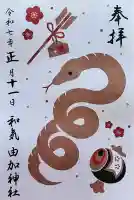 奉拝
令和七年正月十一日
和気由加神社